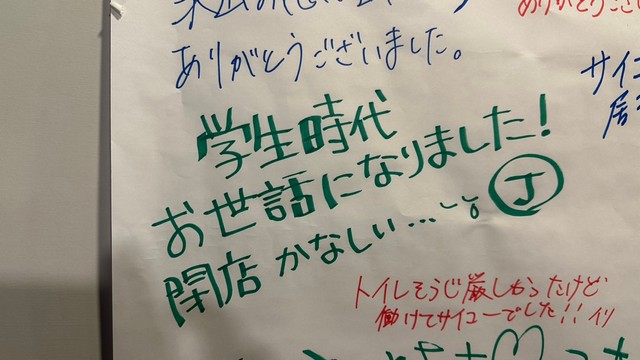 ありがとう
ありがとうございました。
サイコ
居
学生時代
お世話になりました!
閉店 かなしい… J
トイレそうじ厳しかったけど
働けてサイコーでした!! イツ